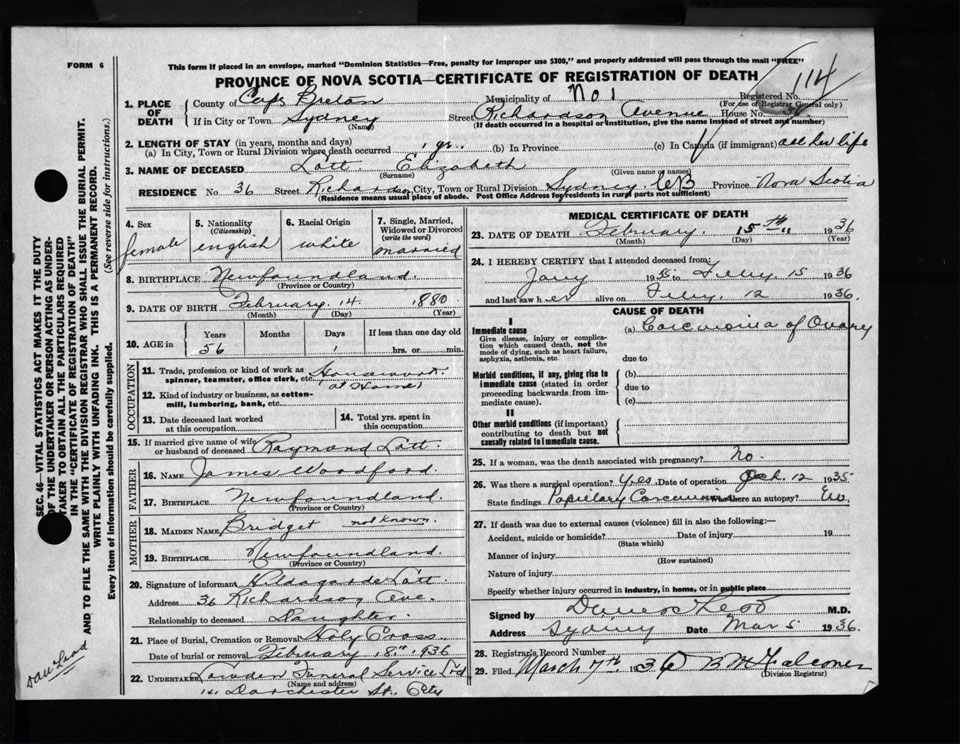 FORM 6
This form if placed in an envelope, marked "Dominion Statistics—Free, penalty for improper use $300," and properly addressed will pass through the mail "FREE"
PROVINCE OF NOVA SCOTIA—CERTIFICATE OF REGISTRATION OF DEATH
114
Registered No.
(For use of Registrar General only)
1. PLACE OF DEATH
County of Cape Breton Municipality of No 1
If in City or Town Sydney Street Richardson Avenue House No.
(Name) (If death occurred in a hospital or institution, give the name instead of street and number)
2. LENGTH OF STAY (in years, months and days)
(a) In City, Town or Rural Division where death occurred 1 yr. (b) In Province (c) In Canada (if immigrant) all her life
3. NAME OF DECEASED Latt. Elizabeth
(Surname) (Given name or names)
RESIDENCE No. 36 Street Richardson City, Town or Rural Division Sydney. CB Province Nova Scotia
(Residence means usual place of abode. Post Office Address for residents in rural parts not sufficient)
4. Sex female
5. Nationality (Citizenship) english
6. Racial Origin white
7. Single, Married, Widowed or Divorced (write the word) married
8. BIRTHPLACE Newfoundland.
(Province or Country)
9. DATE OF BIRTH February. 14. 1880
(Month) (Day) (Year)
10. AGE in Years 56 Months Days 1 If less than one day old hrs. or min.
OCCUPATION
11. Trade, profession or kind of work as spinner, teamster, office clerk, etc. Housework.
at Home
12. Kind of industry or business, as cotton-mill, lumbering, bank, etc.
13. Date deceased last worked at this occupation
14. Total yrs. spent in this occupation.
15. If married give name of wife or husband of deceased Raymond Latt.
FATHER
16. NAME James Woodford.
17. BIRTHPLACE Newfoundland.
(Province or Country)
MOTHER
18. MAIDEN NAME Bridget not known.
19. BIRTHPLACE Newfoundland.
(Province or Country)
20. Signature of informant Hildagarde Latt.
Address 36 Richardson Ave.
Relationship to deceased Daughter
21. Place of Burial, Cremation or Removal Holy Cross
Date of burial or removal February 18th 1936
22. UNDERTAKER Lowden Funeral Service Ltd
(Name and address)
Dorchester St. City
MEDICAL CERTIFICATE OF DEATH
23. DATE OF DEATH February. 15th 1936
(Month) (Day) (Year)
24. I HEREBY CERTIFY that I attended deceased from:
Jany 1935 to Feby. 15 1936
and last saw her alive on Feby. 12 1936.
CAUSE OF DEATH
I
Immediate cause
Give disease, injury or complication which caused death, not the mode of dying, such as heart failure, asphyxia, asthenia, etc.
(a) Carcinoma of Ovary
due to
Morbid conditions, if any, giving rise to immediate cause (stated in order proceeding backwards from immediate cause).
(b)
due to
(c)
II
Other morbid conditions (if important) contributing to death but not causally related to immediate cause.
25. If a woman, was the death associated with pregnancy? No.
26. Was there a surgical operation? Yes. Date of operation Oct. 12 1935
State findings Papillary Carcinoma Was there an autopsy?
27. If death was due to external causes (violence) fill in also the following:—
Accident, suicide or homicide? Date of injury 19
(State which)
Manner of injury
(How sustained)
Nature of injury
Specify whether injury occurred in Industry, in home, or in public place
Signed by M.D.
Address Sydney Date Mar 5 1936.
28. Registrar's Record Number
29. Filed March 7th 1936 B McFalconer
(Division Registrar)
SEC. 46—VITAL STATISTICS ACT MAKES IT THE DUTY
OF THE UNDERTAKER OR PERSON ACTING AS UNDER-
TAKER TO OBTAIN ALL THE PARTICULARS REQUIRED
IN THE "CERTIFICATE OF REGISTRATION OF DEATH"
AND TO FILE THE SAME WITH THE DIVISION REGISTRAR WHO SHALL ISSUE THE BURIAL PERMIT.
WRITE PLAINLY WITH UNFADING INK. THIS IS A PERMANENT RECORD.
Every item of information should be carefully supplied. (See reverse side for instructions.)